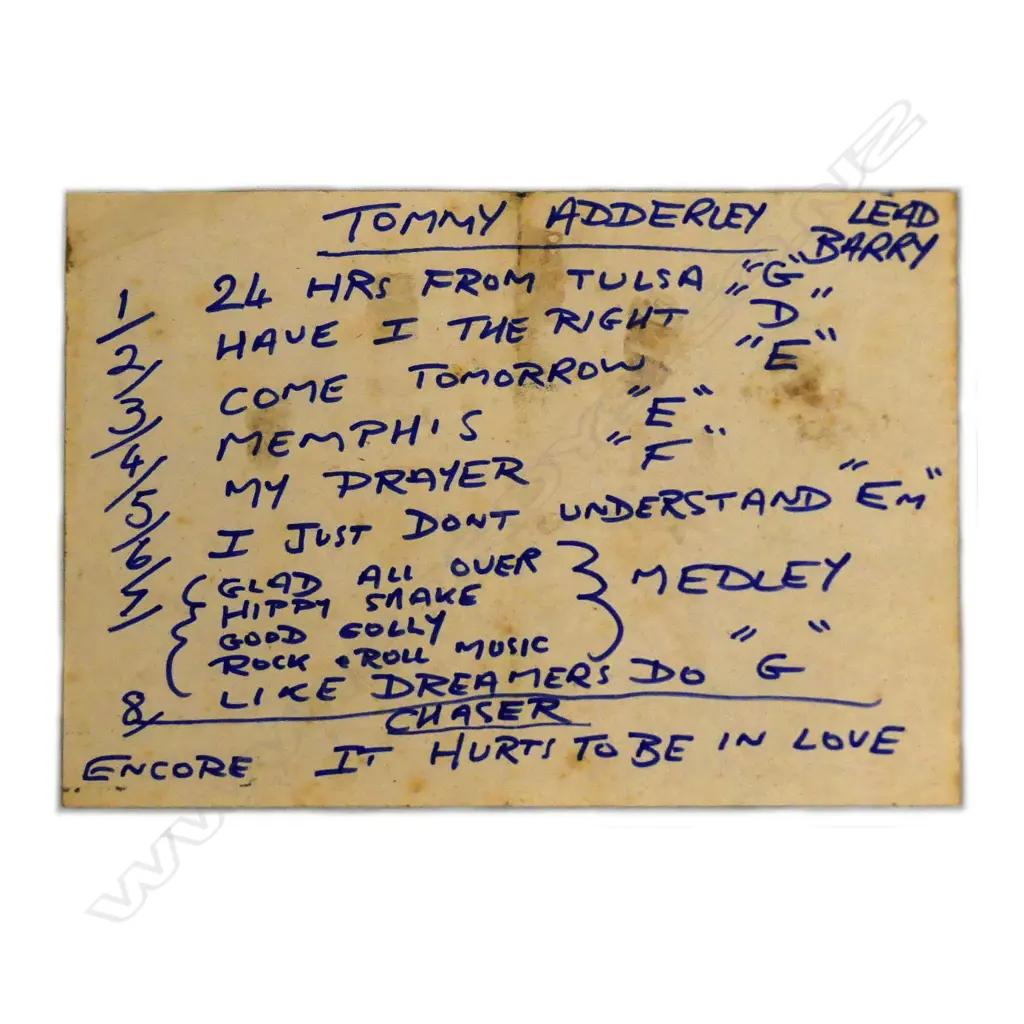 TOMMY ADDERLEY LEAD
BARRY
1/ 24 HRS FROM TULSA "G"
2/ HAVE I THE RIGHT "D"
3/ COME TOMORROW "E"
4/ MEMPHIS "E"
5/ MY PRAYER "F"
6/ I JUST DONT UNDERSTAND "Em"
7/ { GLAD ALL OVER } MEDLEY
HIPPY SHAKE
GOOD GOLLY
ROCK & ROLL MUSIC
8/ LIKE DREAMERS DO "G"
CHASER
ENCORE IT HURTS TO BE IN LOVE